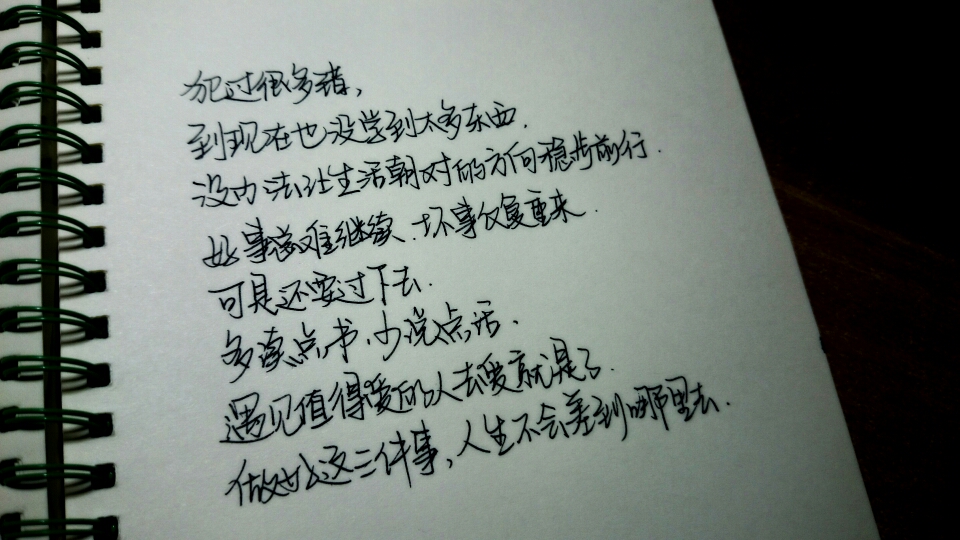 犯过很多错，
到现在也没学到太多东西.
没办法让生活朝对的方向稳步前行.
好事总难继续.坏事反复重来.
可是还要过下去.
多读点书.少说点话.
遇见值得爱的人去爱就是了.
做好这三件事，人生不会差到哪里去.